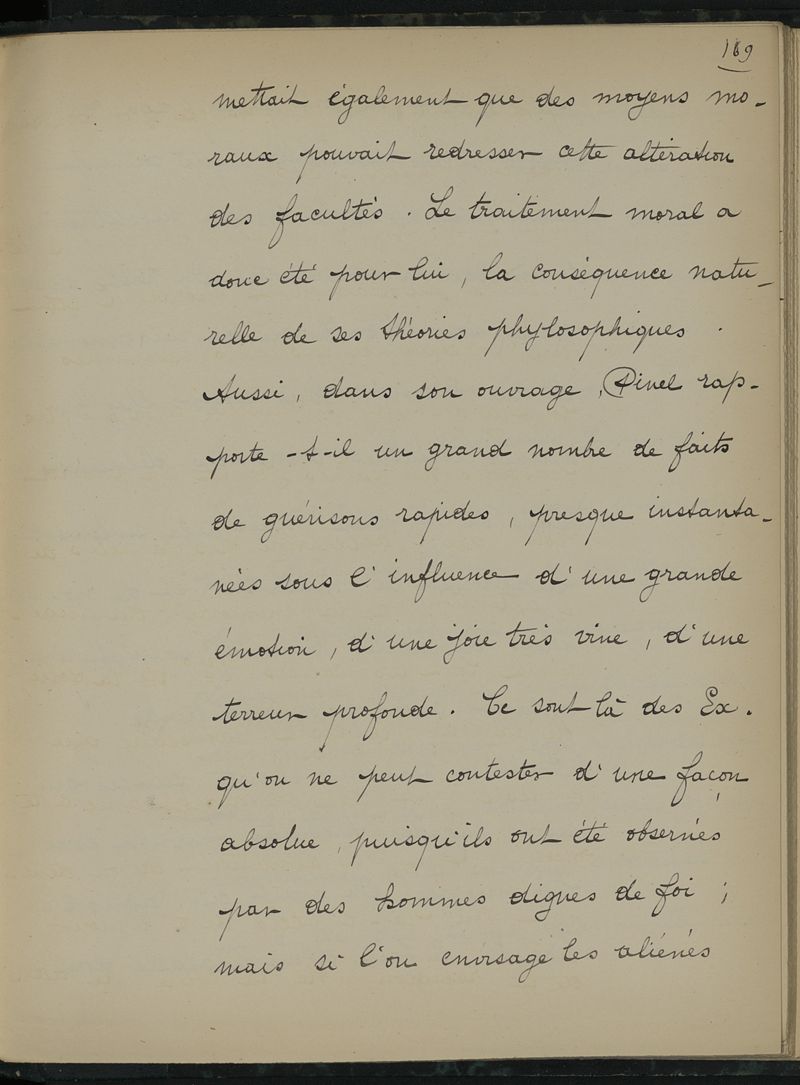 169
mettait également que des moyens mo-
raux pouvait redresser cette altération
des facultés. Le traitement moral a
donc été pour lui, la conséquence natu-
relle de ses théories phylosophiques.
Aussi, dans son ouvrage, Pinel rap-
porte-t-il un grand nombre de faits
de guérisons rapides, presque instanta-
nées sous l'influence d'une grande
émotion, d'une joie très vive, d'une
terreur profonde. Ce sont là des Ex.
qu'on ne peut contester d'une façon
absolue, puisqu'ils ont été observés
par des hommes dignes de foi ;
mais si l'on envisage les aliénés